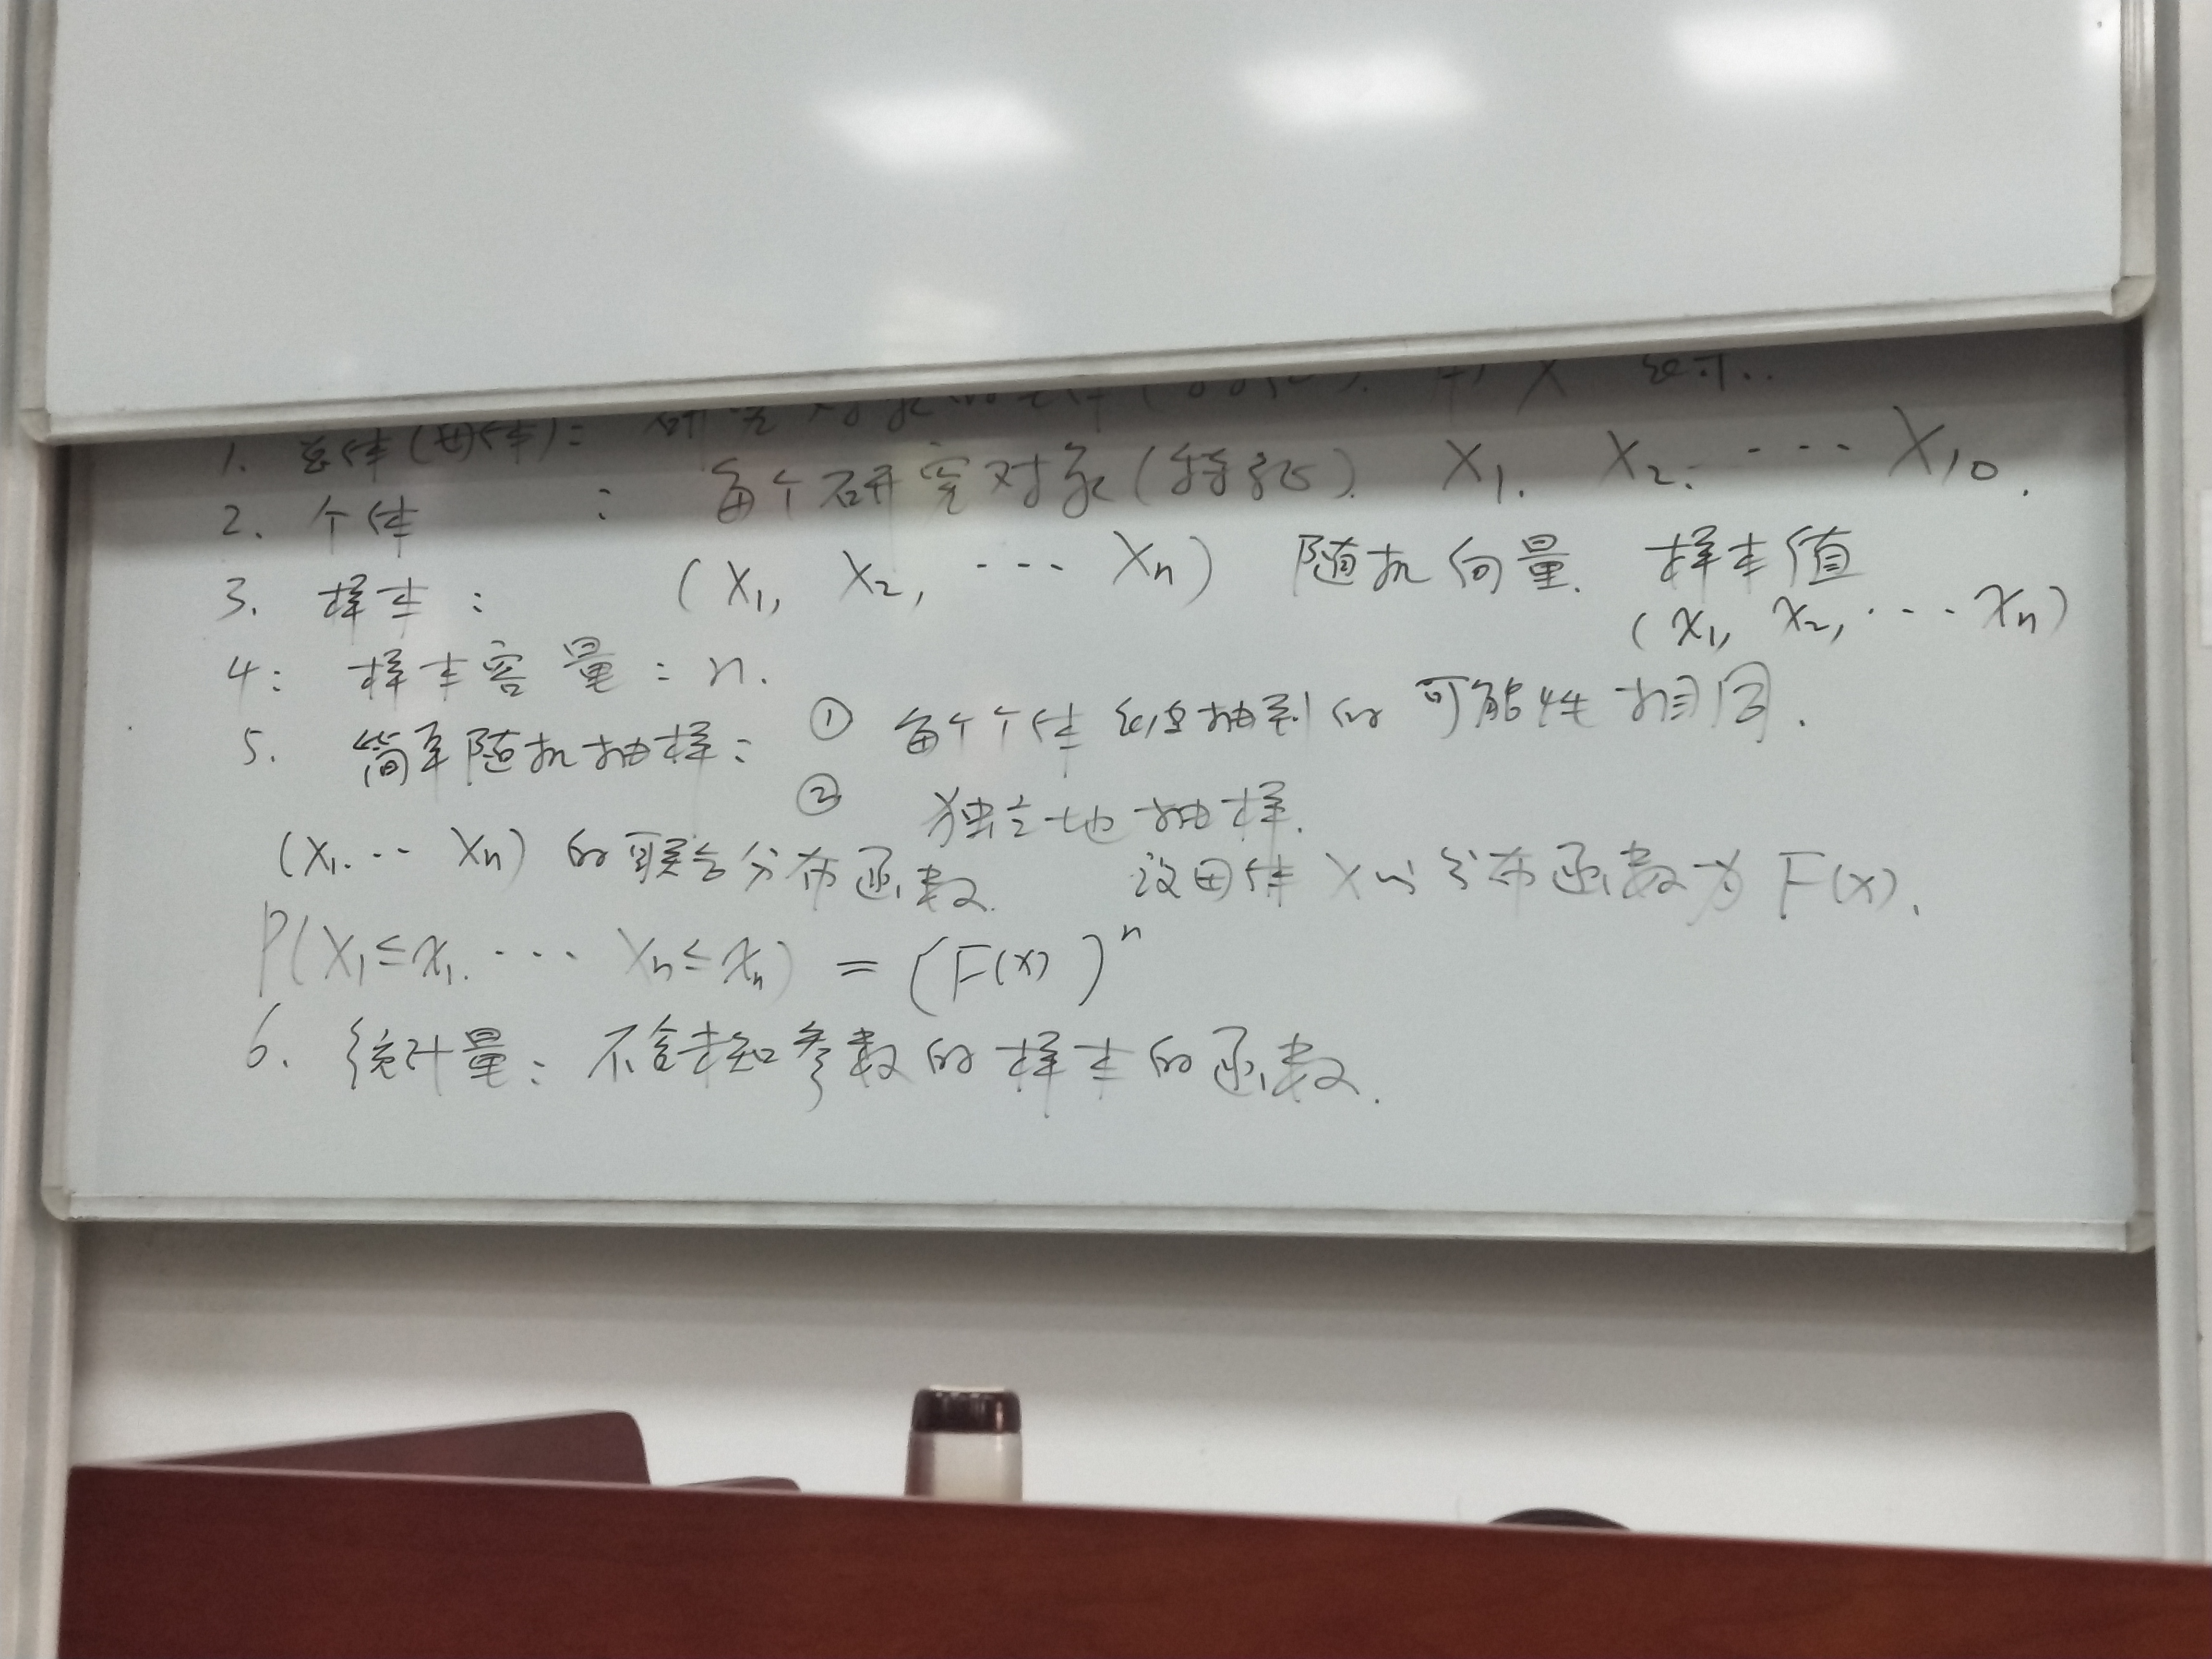 1. 总体(母体): 研究对象的全体(     ). 用 X 表示.
2. 个体 : 每个研究对象(特征). X₁. X₂. ⋯ X₁₀.
3. 样本: (X₁, X₂, ⋯ Xₙ) 随机向量. 样本值
(x₁, x₂, ⋯ xₙ)
4: 样本容量: n.
5. 简单随机抽样: ① 每个个体被抽到的可能性相同.
② 独立地抽样.
(X₁. ⋯ Xₙ) 的联合分布函数. 设母体 X 的分布函数为 F(x).
P(X₁≤x₁. ⋯ Xₙ≤xₙ) = (F(x))ⁿ
6. 统计量: 不含未知参数的样本的函数.